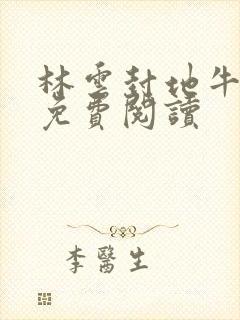 林雲封地牛
免費閱讀
李醫生